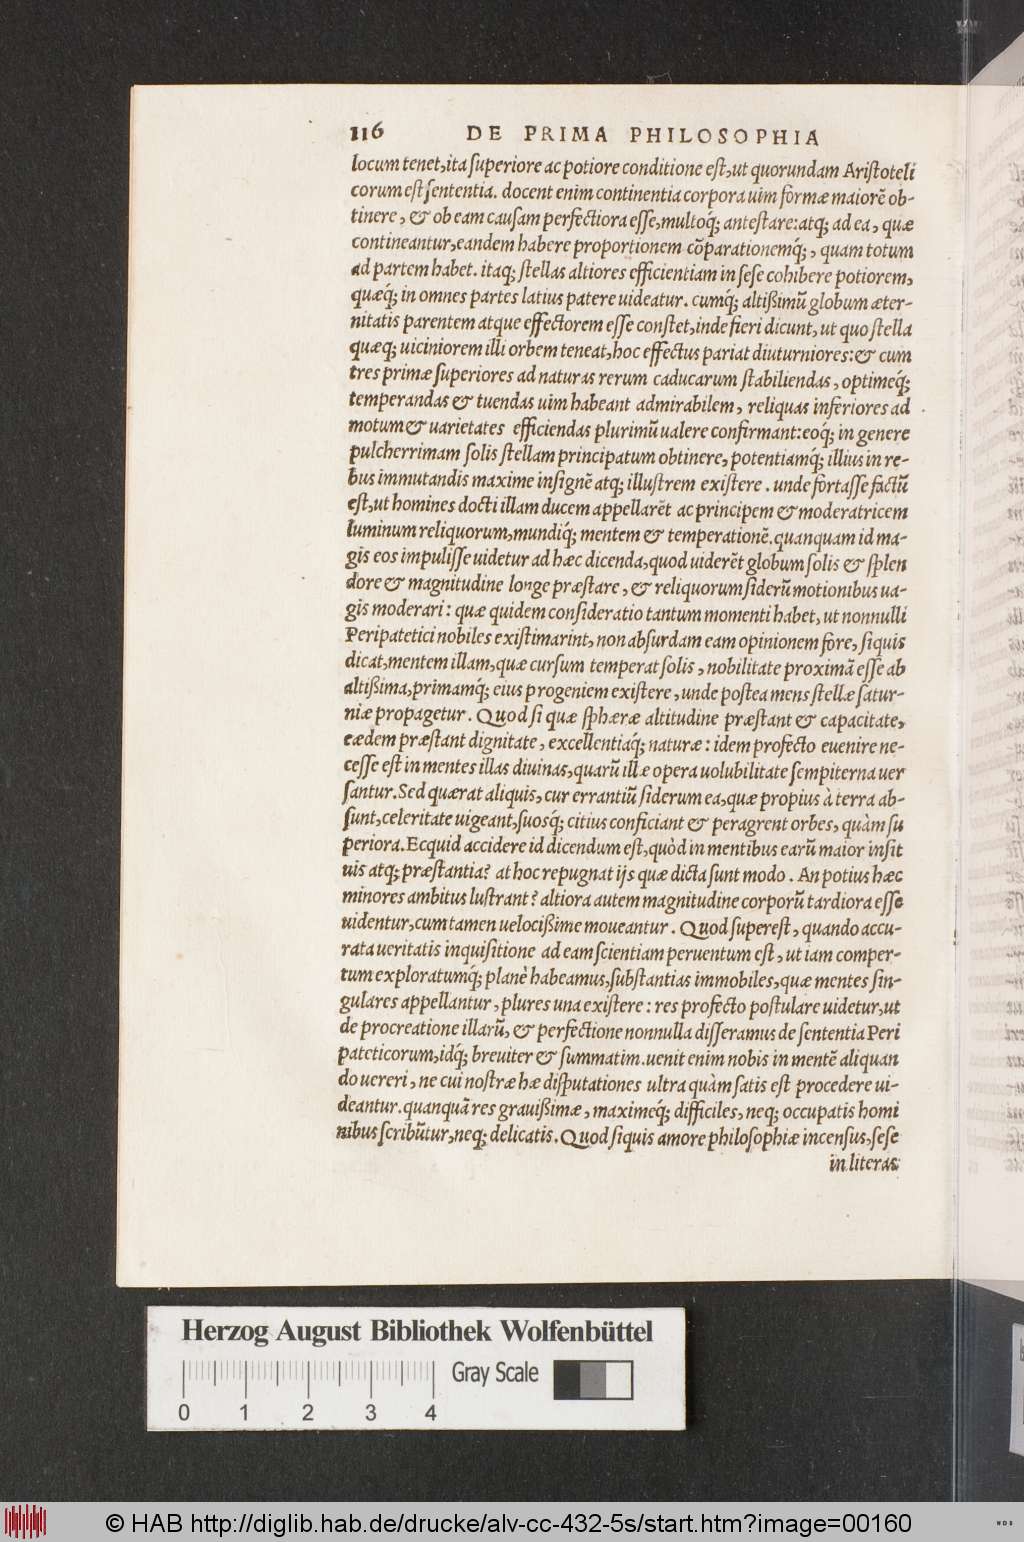 116 DE PRIMA PHILOSOPHIA
locum tenet, ita superiore ac potiore conditione est, ut quorundam Aristoteli
corum est sententia. docent enim continentia corpora uim formæ maiorẽ ob-
tinere, & ob eam causam perfectiora esse, multoq́; antestare: atq; ad ea, quæ
contineantur, eandem habere proportionem cõparationemq́;, quam totum
ad partem habet. itaq; stellas altiores efficientiam in sese cohibere potiorem,
quæq́; in omnes partes latius patere uideatur. cumq́; altißimũ globum æter-
nitatis parentem atque effectorem esse constet, inde fieri dicunt, ut quo stella
quæq; uiciniorem illi orbem teneat, hoc effectus pariat diuturniores: & cum
tres primæ superiores ad naturas rerum caducarum stabiliendas, optimeq́;
temperandas & tuendas uim habeant admirabilem, reliquas inferiores ad
motum & uarietates efficiendas plurimũ ualere confirmant: eoq́; in genere
pulcherrimam solis stellam principatum obtinere, potentiamq́; illius in re-
bus immutandis maxime insignẽ atq; illustrem existere. unde fortasse factũ
est, ut homines docti illam ducem appellarẽt ac principem & moderatricem
luminum reliquorum, mundiq́; mentem & temperationẽ. quanquam id ma-
gis eos impulisse uidetur ad hæc dicenda, quod uiderẽt globum solis & splen
dore & magnitudine longe præstare, & reliquorum siderũ motionibus ua-
gis moderari: quæ quidem consideratio tantum momenti habet, ut nonnulli
Peripatetici nobiles existimarint, non absurdam eam opinionem fore, siquis
dicat, mentem illam, quæ cursum temperat solis, nobilitate proximã esse ab
altißima, primamq́; eius progeniem existere, unde postea mens stellæ satur-
niæ propagetur. Quod si quæ sphæræ altitudine præstant & capacitate,
eædem præstant dignitate, excellentiaq́; naturæ: idem profecto euenire ne-
cesse est in mentes illas diuinas, quarũ illæ opera uolubilitate sempiterna uer
santur. Sed quærat aliquis, cur errantiũ siderum ea, quæ propius à terra ab-
sunt, celeritate uigeant, suosq́; citius conficiant & peragrent orbes, quàm su
periora. Ecquid accidere id dicendum est, quòd in mentibus earũ maior insit
uis atq; præstantia? at hoc repugnat ijs quæ dicta sunt modo. An potius hæc
minores ambitus lustrant? altiora autem magnitudine corporũ tardiora esse
uidentur, cum tamen uelocißime moueantur. Quod superest, quando accu-
rata ueritatis inquisitione ad eam scientiam peruentum est, ut iam comper-
tum exploratumq́; planè habeamus, substantias immobiles, quæ mentes sin-
gulares appellantur, plures una existere: res profecto postulare uidetur, ut
de procreatione illarũ, & perfectione nonnulla disseramus de sententia Peri
pateticorum, idq́; breuiter & summatim. uenit enim nobis in mentẽ aliquan
do uereri, ne cui nostræ hæ disputationes ultra quàm satis est procedere ui-
deantur. quanquã res grauißimæ, maximeq́; difficiles, neq; occupatis homi
nibus scribũtur, neq; delicatis. Quod siquis amore philosophiæ incensus, sese
in literas
Herzog August Bibliothek Wolfenbüttel
Gray Scale
0 1 2 3 4
© HAB http://diglib.hab.de/drucke/alv-cc-432-5s/start.htm?image=00160